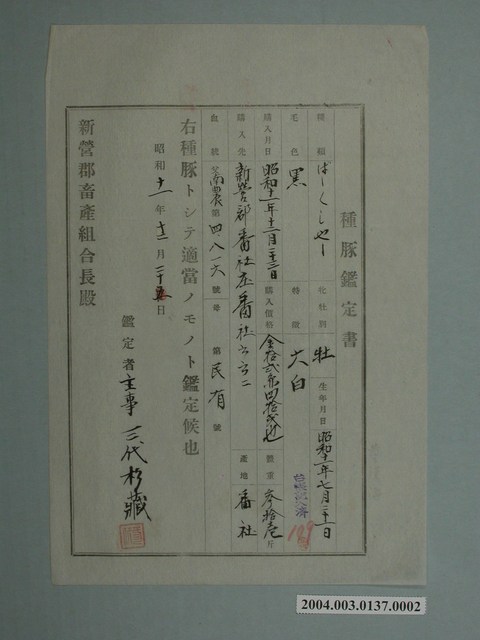 種豚鑑定書
種類 ばーくしやー 牝牡別 牡 生年月日 昭和十一年七月二十一日
毛色 黑 特徵 六白
購入月日 昭和十一年十二月二十二日 購入價格 金拾貳円四拾錢也 體重 參拾壱斤
購入先 新營郡番社庄番社六六二 產地 番社
血統 父 南農第四八一六號 母 第 民有 號
右種豚トシテ適當ノモノト鑑定候也
昭和十一年十二月二十五日
鑑定者 主事 三代杉藏
新營郡畜產組合長殿
189
2004.003.0137.0002